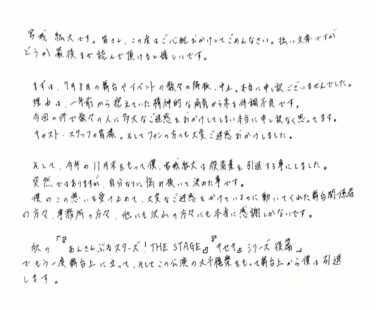 宮城紘大です。皆さん、この度はご心配おかけしてごめんなさい。拙い文章ですが
どうか最後まで読んで頂けると嬉しいです。
まずは、7月8月の舞台やイベントの数々の降板、中止。本当に申し訳ございませんでした。
理由は、一年前から抱えていた精神的な病気から来る体調不良です。
今回の件で数々の人に多大なご迷惑をおかけしてしまい本当に申し訳なく思ってます。
キャスト・スタッフの皆様。そしてファンの方々も大変ご迷惑おかけしました。
そして、今年の11月末をもって僕、宮城紘大は役者業を引退する事にしました。
突然ではありますが、自分なりに悩み抜いて決めた事です。
僕のこの思いを受け止めて、大変なご迷惑をかけているのに動いてくれた舞台関係者
の方々、事務所の方々、他にも沢山の方々にも本当に感謝しかないです。
秋の「『あんさんぶるスターズ!THE STAGE』『キセキ』シリーズ後篇」
でもう一度舞台上に立って、そしてこの公演の大千穐楽をもって舞台上から僕は引退
します。